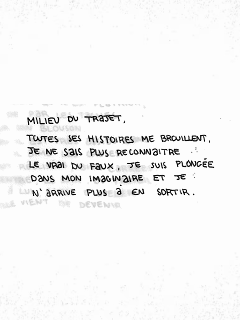 MILIEU DU TRAJET,
TOUTES SES HISTOIRES ME BROUILLENT,
JE NE SAIS PLUS RECONNAITRE
LE VRAI DU FAUX, JE SUIS PLONGÉE
DANS MON IMAGINAIRE ET JE
N'ARRIVE PLUS À EN SORTIR.
VIENT DE DEVENIR